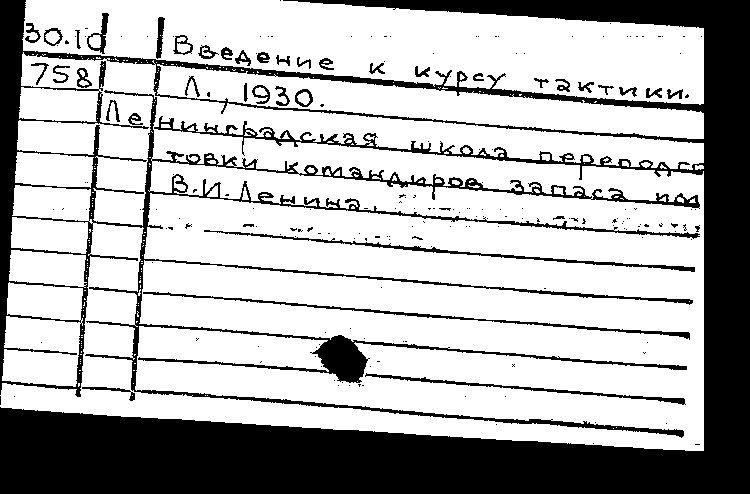 30.10 Введение к курсу тактики.
758 Л., 1930.
Ленинградская школа переподго
товки командиров запаса им
В.И.Ленина.